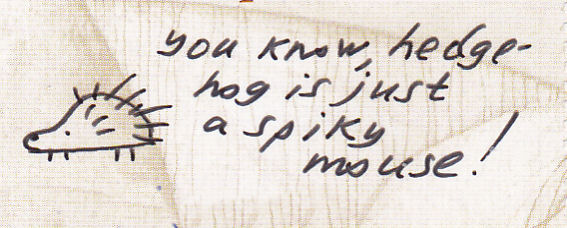 you know, hedge-
hog is just
a spiky
mouse!